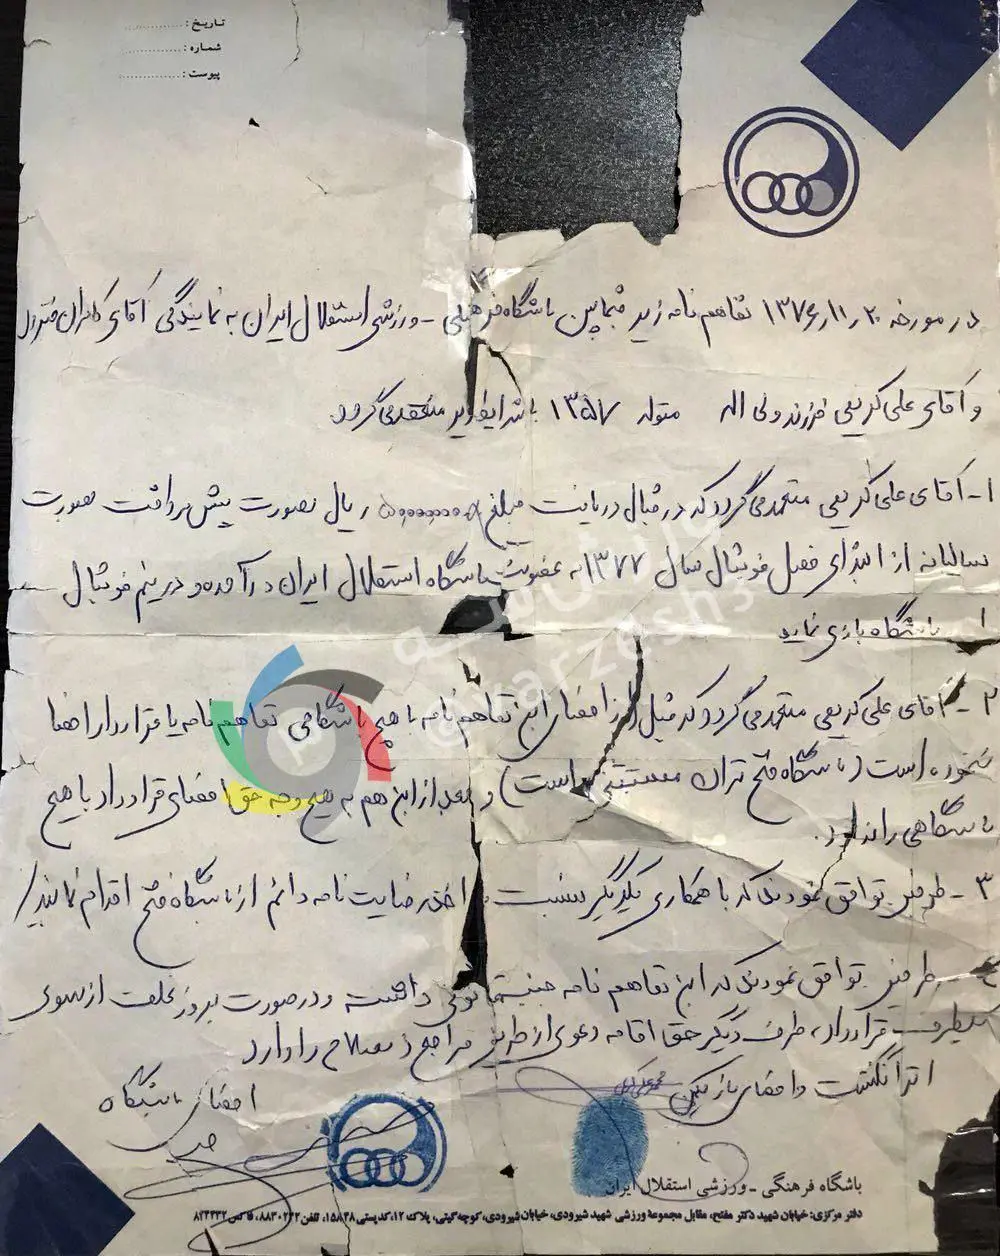 تاریخ :
شماره :
پیوست :
در مورخه ۱۳۷۶/۱۱/۲۰ تفاهم نامه زیر فیمابین باشگاه فرهنگی - ورزشی استقلال ایران به نمایندگی آقای کامران
و آقای علی کریمی فرزند ولی اله متولد ۱۳۵۷ با شرایط زیر منعقد می گردد.
۱- آقای علی کریمی متعهد می گردد که در قبال دریافت مبلغ ریال بصورت پیش پرداخت بصورت
سالیانه از ابتدای فصل فوتبال سال ۱۳۷۷ به عضویت باشگاه استقلال ایران درآمده و در تیم فوتبال
باشگاه بازی نماید
۲- آقای علی کریمی متعهد می گردد که قبل از امضای این تفاهم نامه با هیچ باشگاهی تفاهم نامه یا قرارداد امضا
ننموده است (باشگاه فتح تهران مستثنی است) و بعد از این هم به هیچ وجه حق امضای قرارداد با هیچ
باشگاهی را ندارد.
۳- طرفین توافق نمودند که با همکاری یکدیگر نسبت به اخذ رضایت نامه دائم از باشگاه فتح اقدام نمایند
۴- طرفین توافق نمودند که این تفاهم نامه داشته و در صورت بروز تخلف از سوی
یکطرف قرارداد، طرف دیگر حق اقامه دعوی از طریق مراجع ذیصلاح را دارد
اثر انگشت و امضای بازیکن
امضای باشگاه
ورزش سه
@varzesh3
باشگاه فرهنگی - ورزشی استقلال ایران
دفتر مرکزی: خیابان شهید دکتر مفتح، مقابل مجموعه ورزشی شهید شیرودی، خیابان شیرودی، کوچه گیتی، پلاک ۱۲، کدپستی ۱۵۸۴۸، تلفن ۸۸۳۰۲۴۲، فاکس ۸۲۴۴۳۲